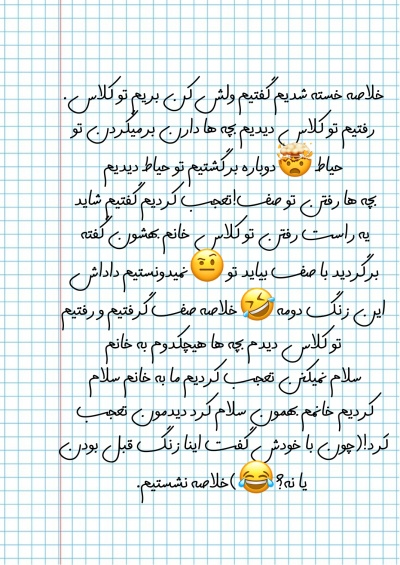 خلاصه خسته شدیم گفتیم ولش کن بریم تو کلاس .
رفتیم تو کلاس دیدیم بچه ها دارن برمیگردن تو
حیاط🤯دوباره برگشتیم تو حیاط دیدیم
بچه ها رفتن تو صف!تعجب کردیم گفتیم شاید
یه راست رفتن تو کلاس خانم بهشون گفته
برگردید با صف بیاید تو🤨نمیدونستیم داداش
این زنگ دومه🤣خلاصه صف گرفتیم و رفتیم
تو کلاس دیدم بچه ها هیچکدوم به خانم
سلام نمیکنن تعجب کردیم ما به خانم سلام
کردیم خانمم بهمون سلام کرد دیدمون تعجب
کرد!(چون با خودش گفت اینا زنگ قبل بودن
یا نه؟😂)خلاصه نشستیم.